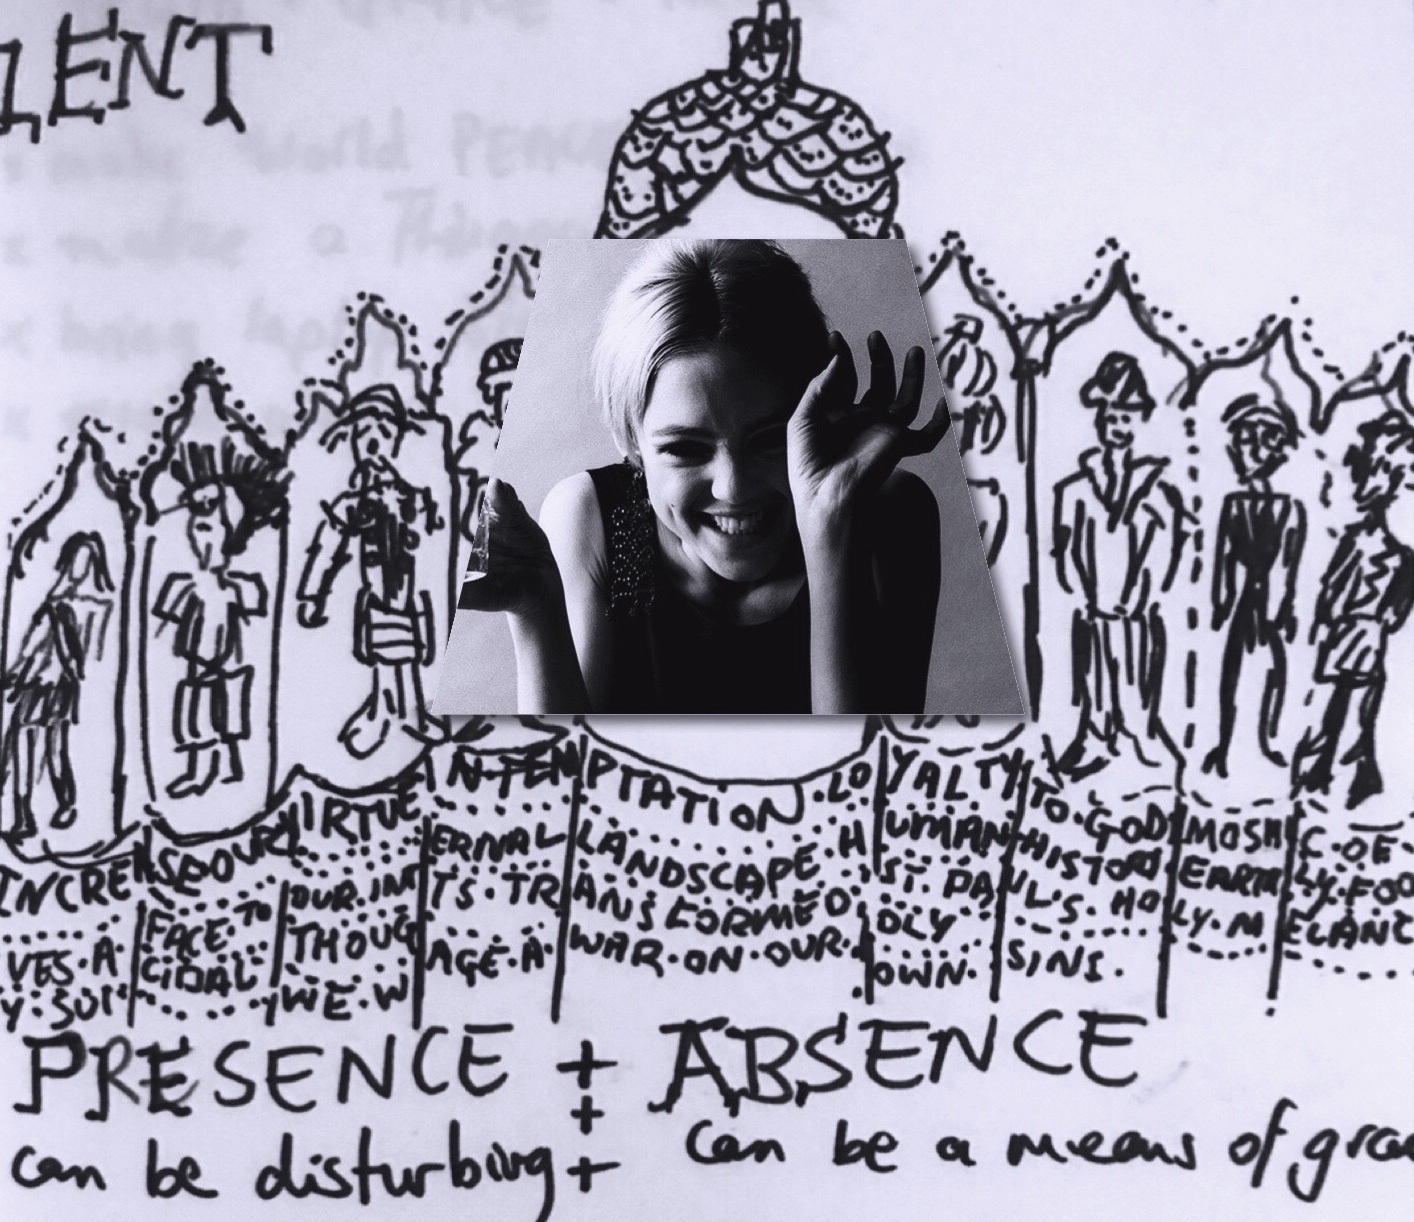 LENT
make World
a
INCREASE·OUR VIRTUE IN·TEMPTATION·LOYALTY·TO·GOD MOSH C·OF·
FACE·TO OUR·INTERNAL LANDSCAPE·HUMAN HISTORY EARTHLY·FOO
VES·A CIDAL THOUGHTS·TRANSFORMED ST. PAUL'S·HOLY·MELANC
Y·SUI WE·WAGE·A·WAR·ON·OUR·OWN·SINS.
PRESENCE + ABSENCE
+
can be disturbing + can be a means of grac